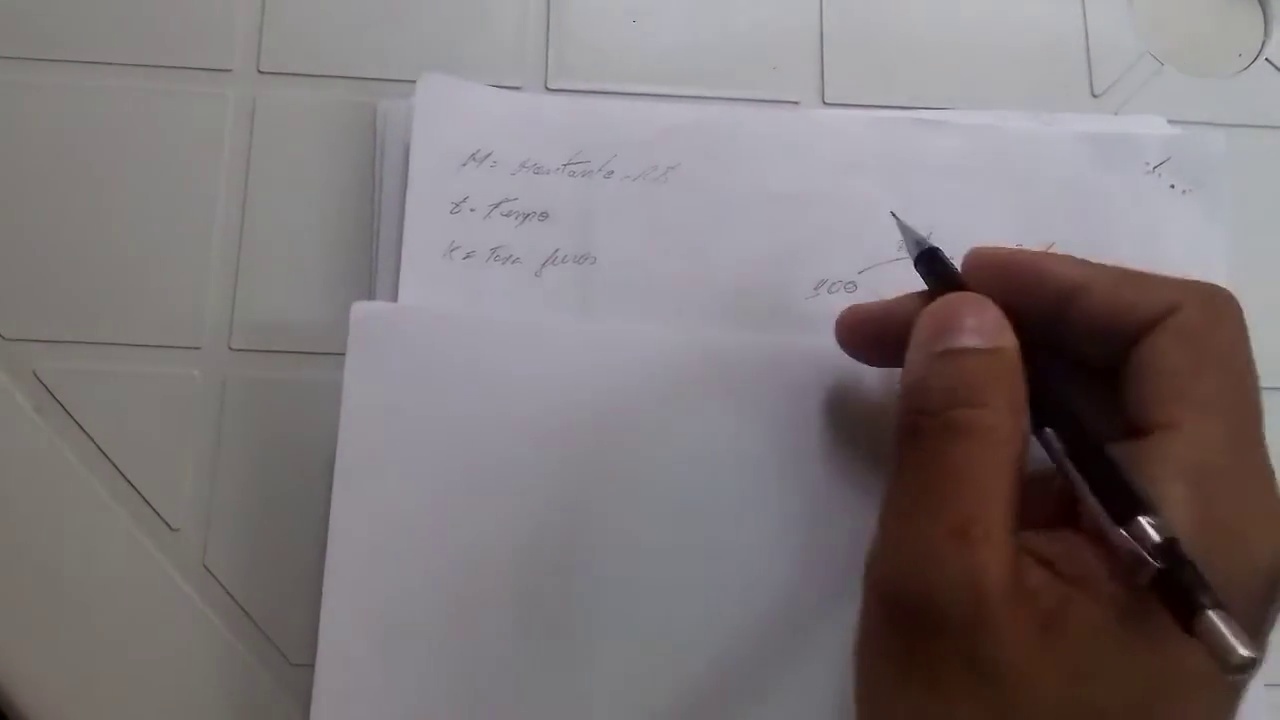 M = Montante - R$
t - Tempo
K = Taxa juros
100